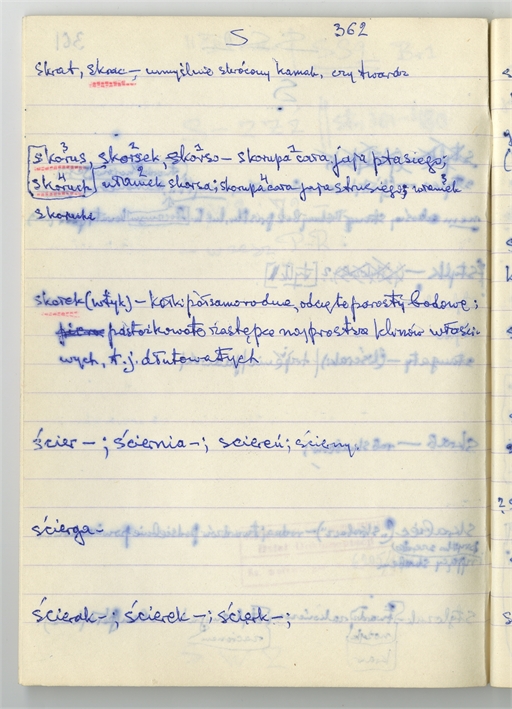 S 362
skrat, skrac –, umyślnie skrócony kamah, czy twardz
skorus³, skorsek², skorso¹ – skorupa¹ cara jaja ptasiego;
skoruch⁴ ułamek² skorsa; skorupa⁴ cara jaja strusiego; ułamek³
skoruha
skorek (wtyk) – kołki półsamorodne, odcięte porosty bodowę;
pastorkowate następce najprostva klonów właści-
wych, t.j. dłutowatych
ścier –; ściernia –; ściereń; ścierny.
ścierga –
ścierak –; ścierek –; ścierk –;